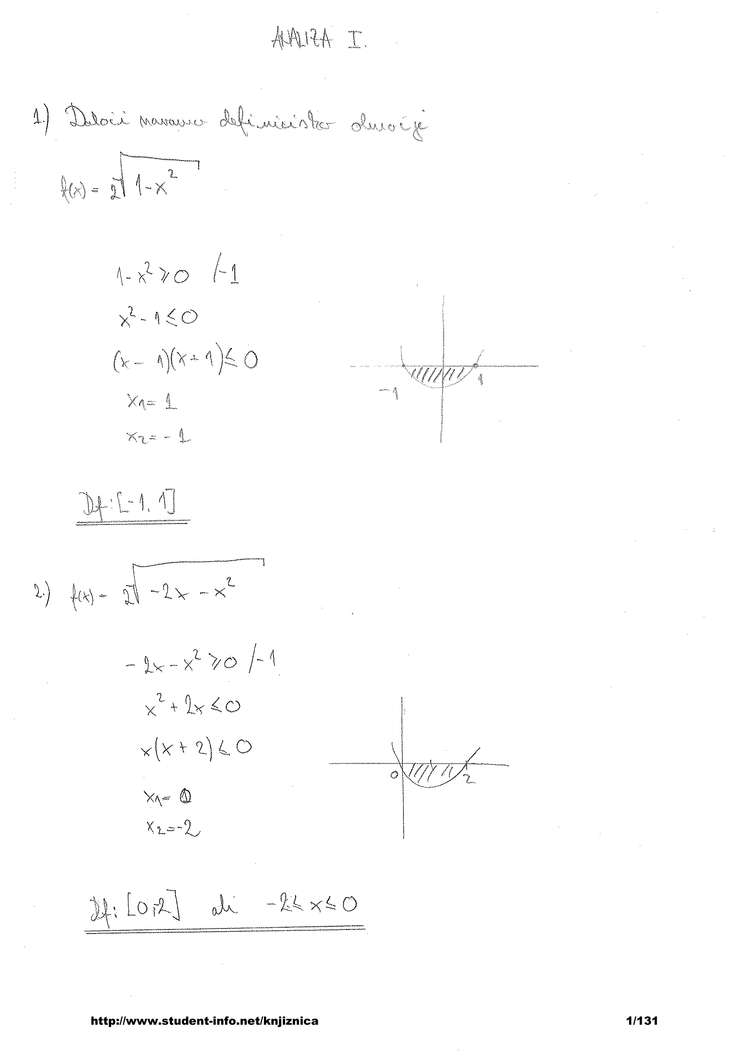 ANALIZA I.
1.) Določi naravno definicijsko območje
f(x) = 2√1-x²
1-x² ≥ 0 /-1
x² - 1 ≤ 0
(x - 1)(x + 1) ≤ 0
x1 = 1
x2 = - 1
-1 1
Df: [-1, 1]
2.) f(x) = 2√-2x - x²
- 2x - x² ≥ 0 /-1
x² + 2x ≤ 0
x(x + 2) ≤ 0
x1 = 0
x2 = -2
0 2
Df: [0,-2] ali -2 ≤ x ≤ 0
http://www.student-info.net/knjiznica 1/131